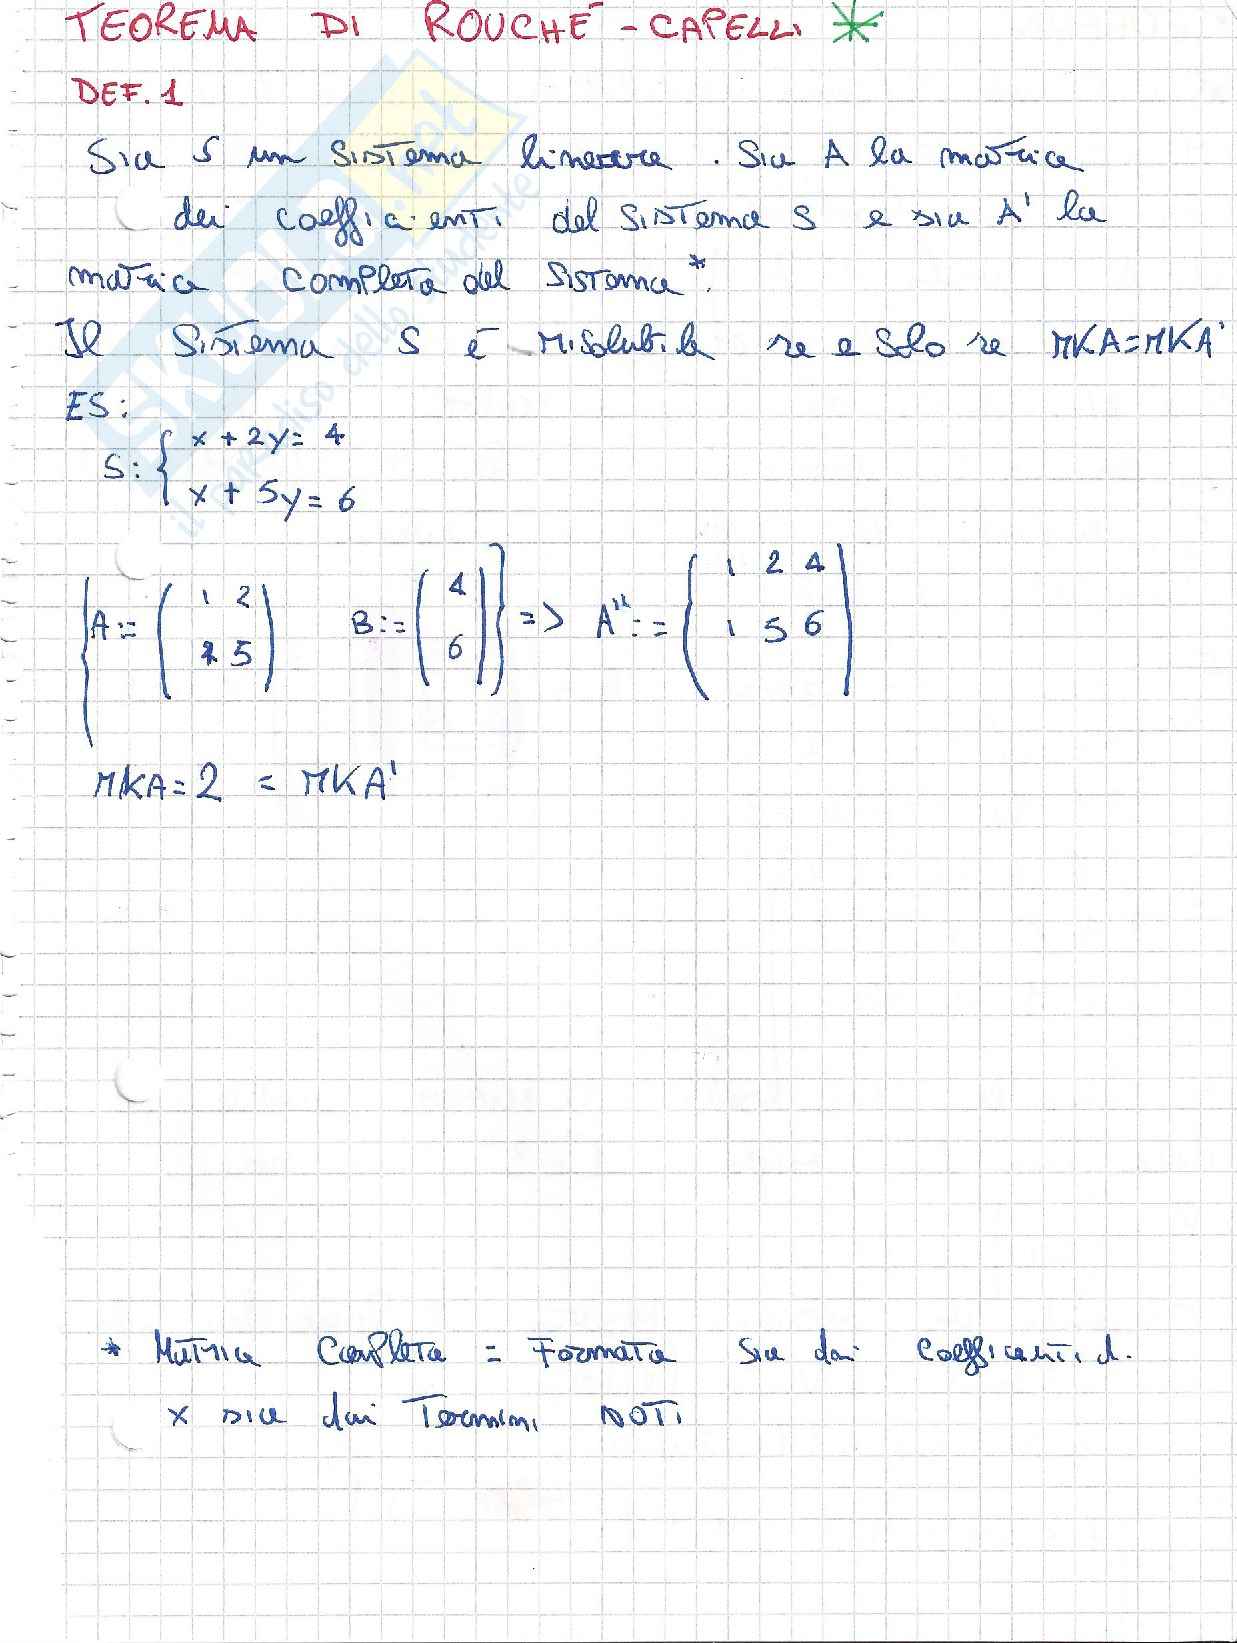 TEOREMA DI ROUCHÉ - CAPELLI *
DEF. 1
Sia S un sistema lineare. Sia A la matrice
dei coefficienti del sistema S e sia A' la
matrice completa del sistema*.
Il sistema S è risolubile se e solo se rKA=rKA'
ES:
S: { x + 2y = 4
x + 5y = 6
{ A:= ( 1 2 B:= ( 4 } => A'':= ( 1 2 4 )
1 5 ) 6 ) 1 5 6
rKA = 2 = rKA'
* Matrice Completa = Formata sia dai coefficienti di
x sia dai Termini NOTI
SKUOLA.net
il paradiso dello studente